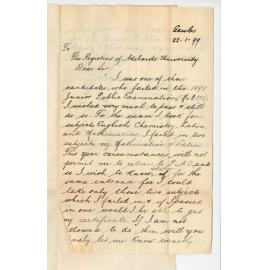 Gawler
22-1-99
To
The Registrar of Adelaide University
Dear Sir,
I was one of those
candidates who failed in the 1898
Junior Public Examination,
I wished very much to pass & still
do so. For the exam I took four
subjects English Chemistry, Latin
and Mathematics. I failed in two
subjects viz Mathematics & Latin.
This year circumstances will not
permit me to return to and
so I wish to know, if for the
same entrance fee I could
take only those two subjects
which I failed in & if I passed
in one would I be able to get
my certificate. If I am not
allowed to do this will you
kindly let me know exactly